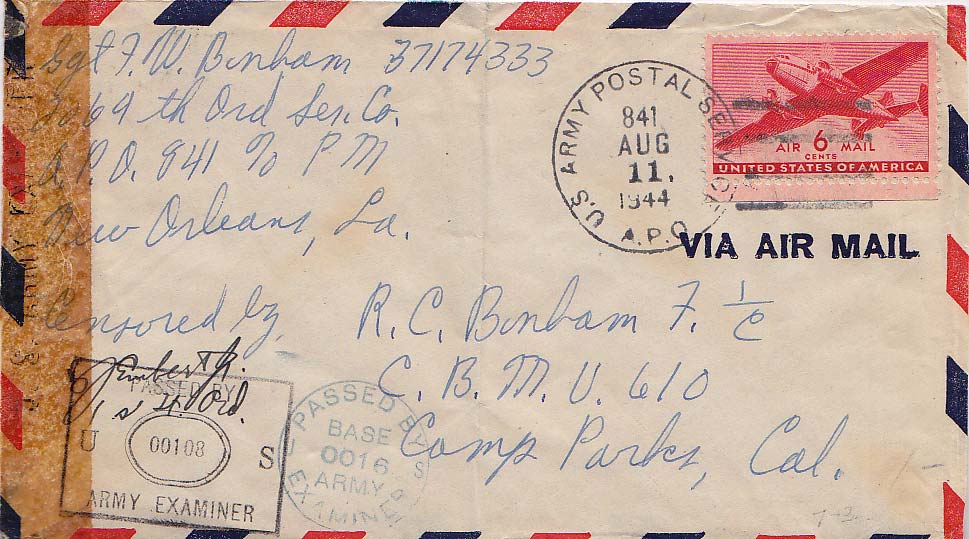 Sgt F. W. Bonham 37174333
3069 th Ord Ser. Co.
A.P.O. 841 % P M
New Orleans, La.
Censored by
1st Lt. Ord.
PASSED BY
U 00108 S
ARMY EXAMINER
PASSED BY
BASE
0016
ARMY
EXAMINER
U.S. ARMY POSTAL SERVICE
841
AUG
11.
1944
A.P.O.
AIR 6 MAIL
CENTS
UNITED STATES OF AMERICA
VIA AIR MAIL
R. C. Bonham F. 1/c
C. B. M. U. 610
Camp Parks, Cal.